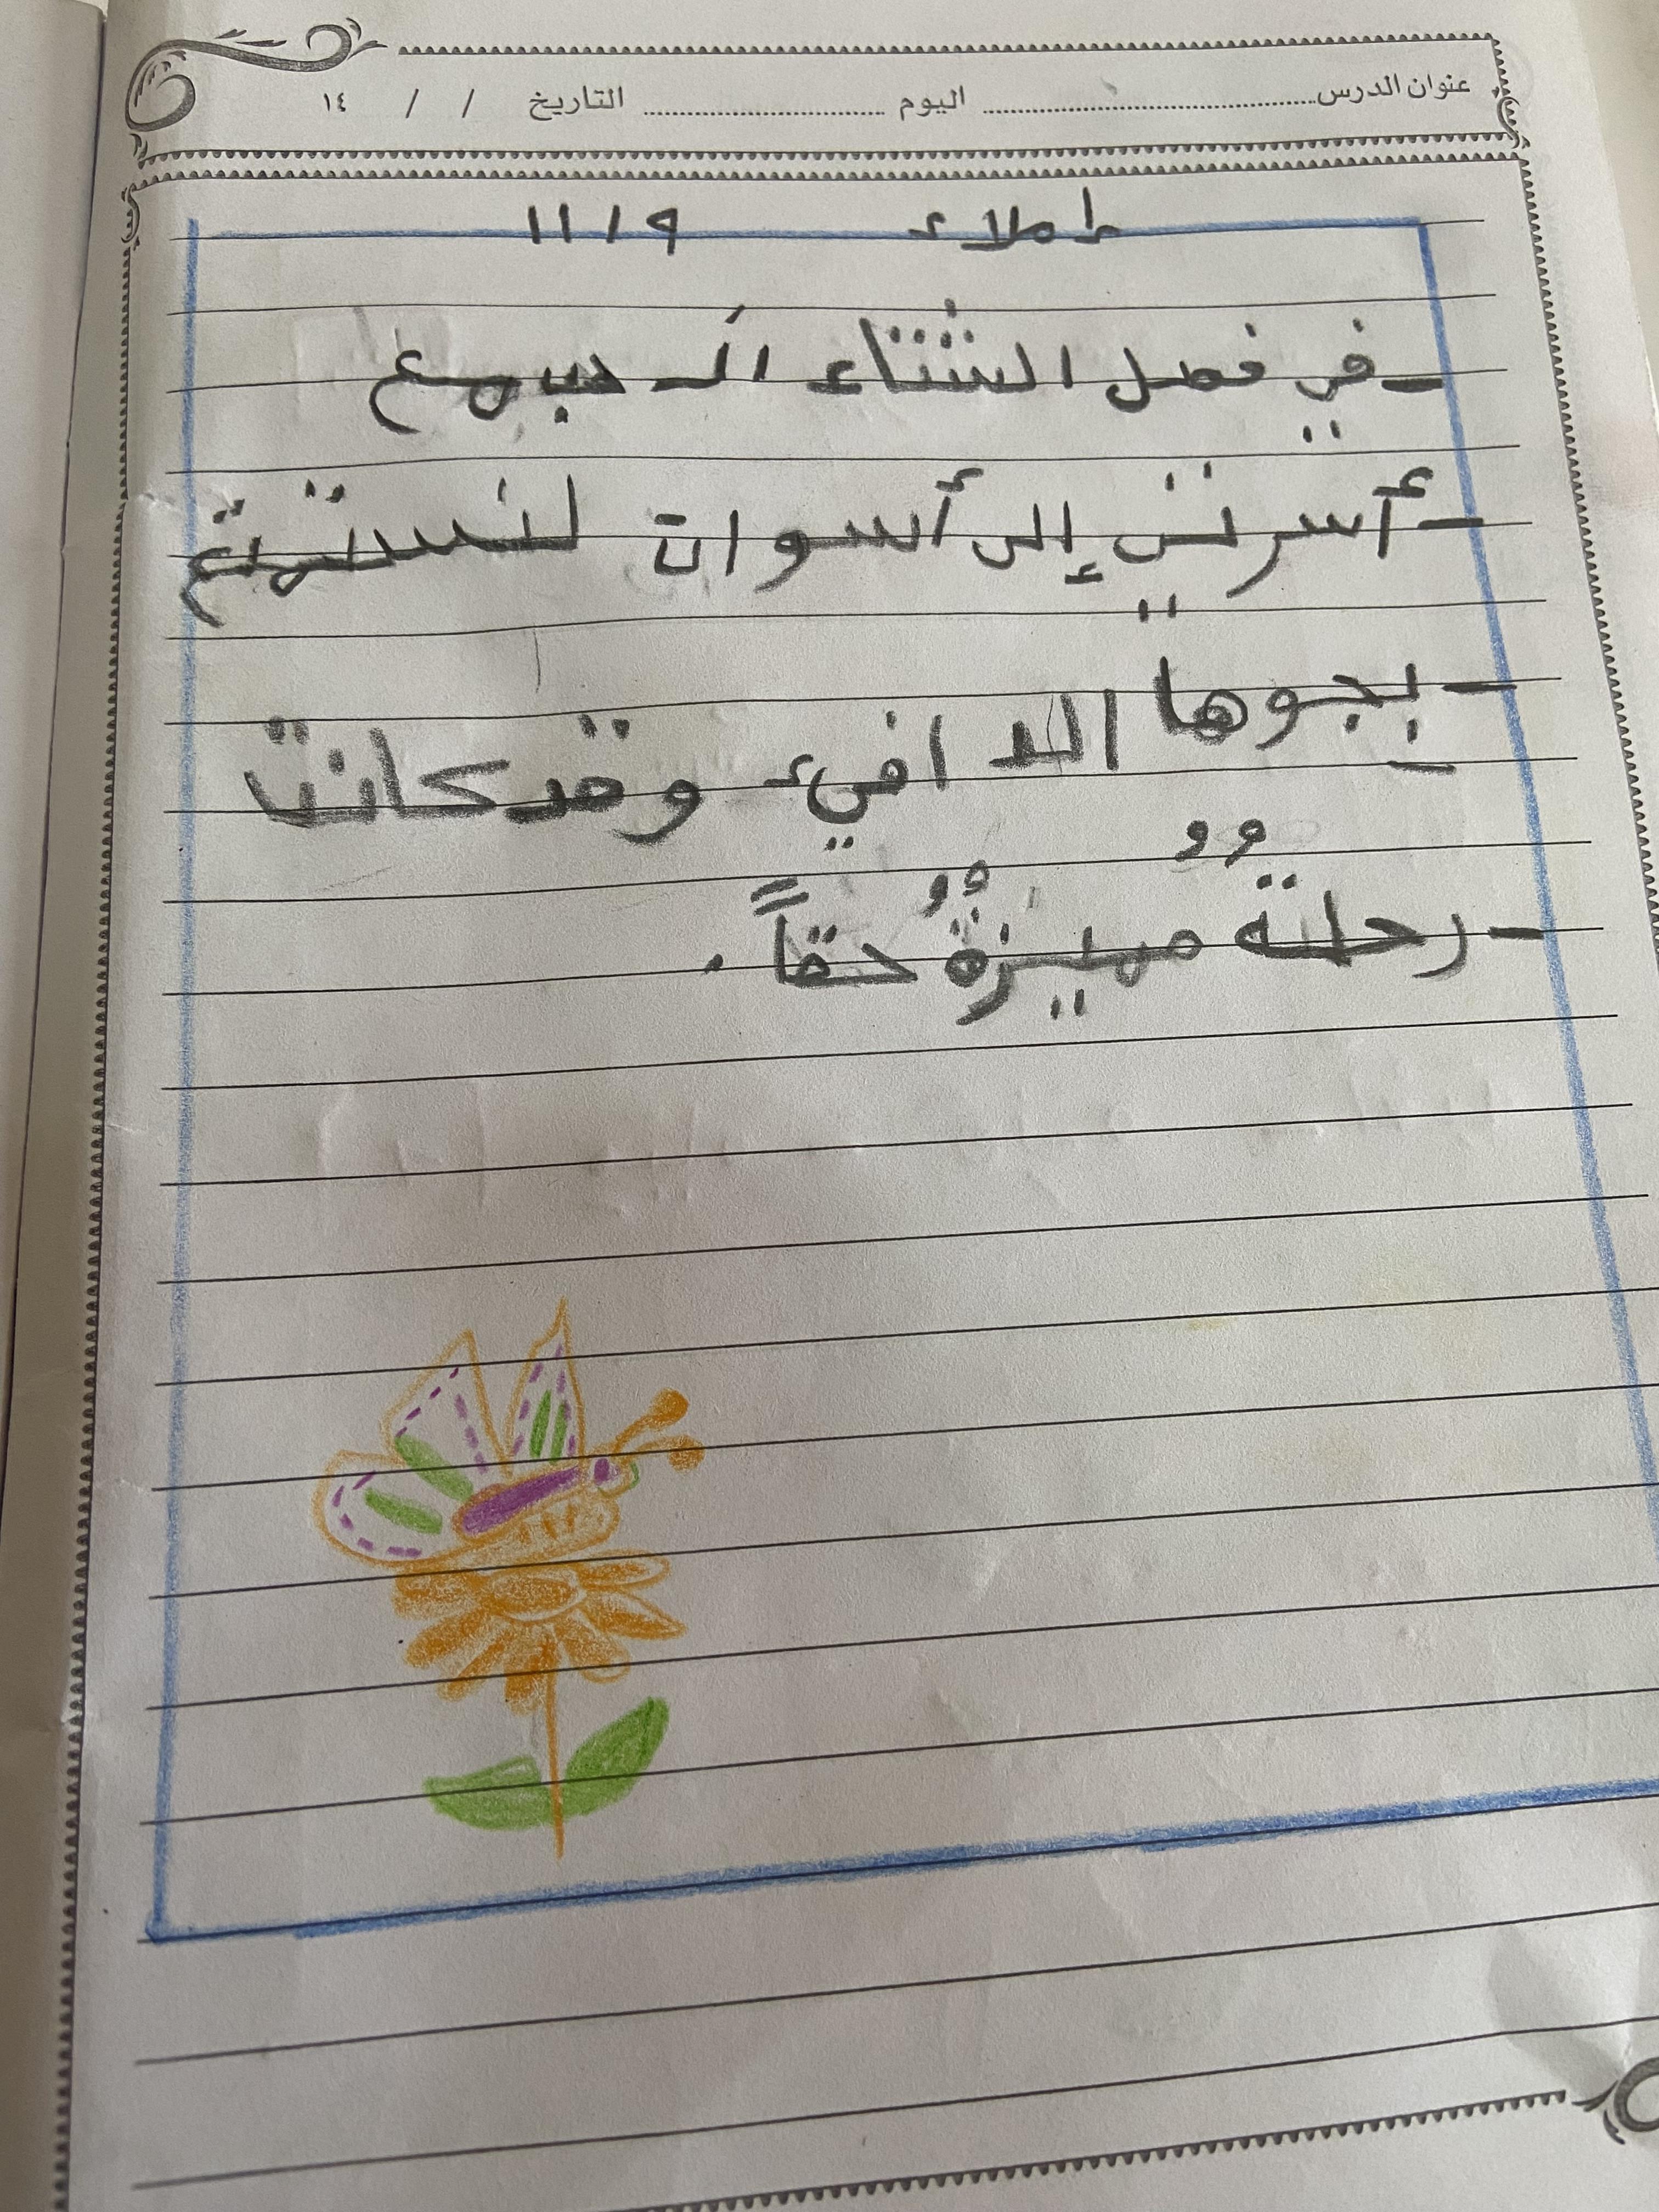 عنوان الدرس اليوم التاريخ / / ١٤
إملاء ٩ / ١١
- في فصل الشتاء اَلـ مع
- أسرتي إلى أسوان لنستمتع
- بجوها الدافيء وقد كانت
- رحلةٌ مميزةٌ حقاً .